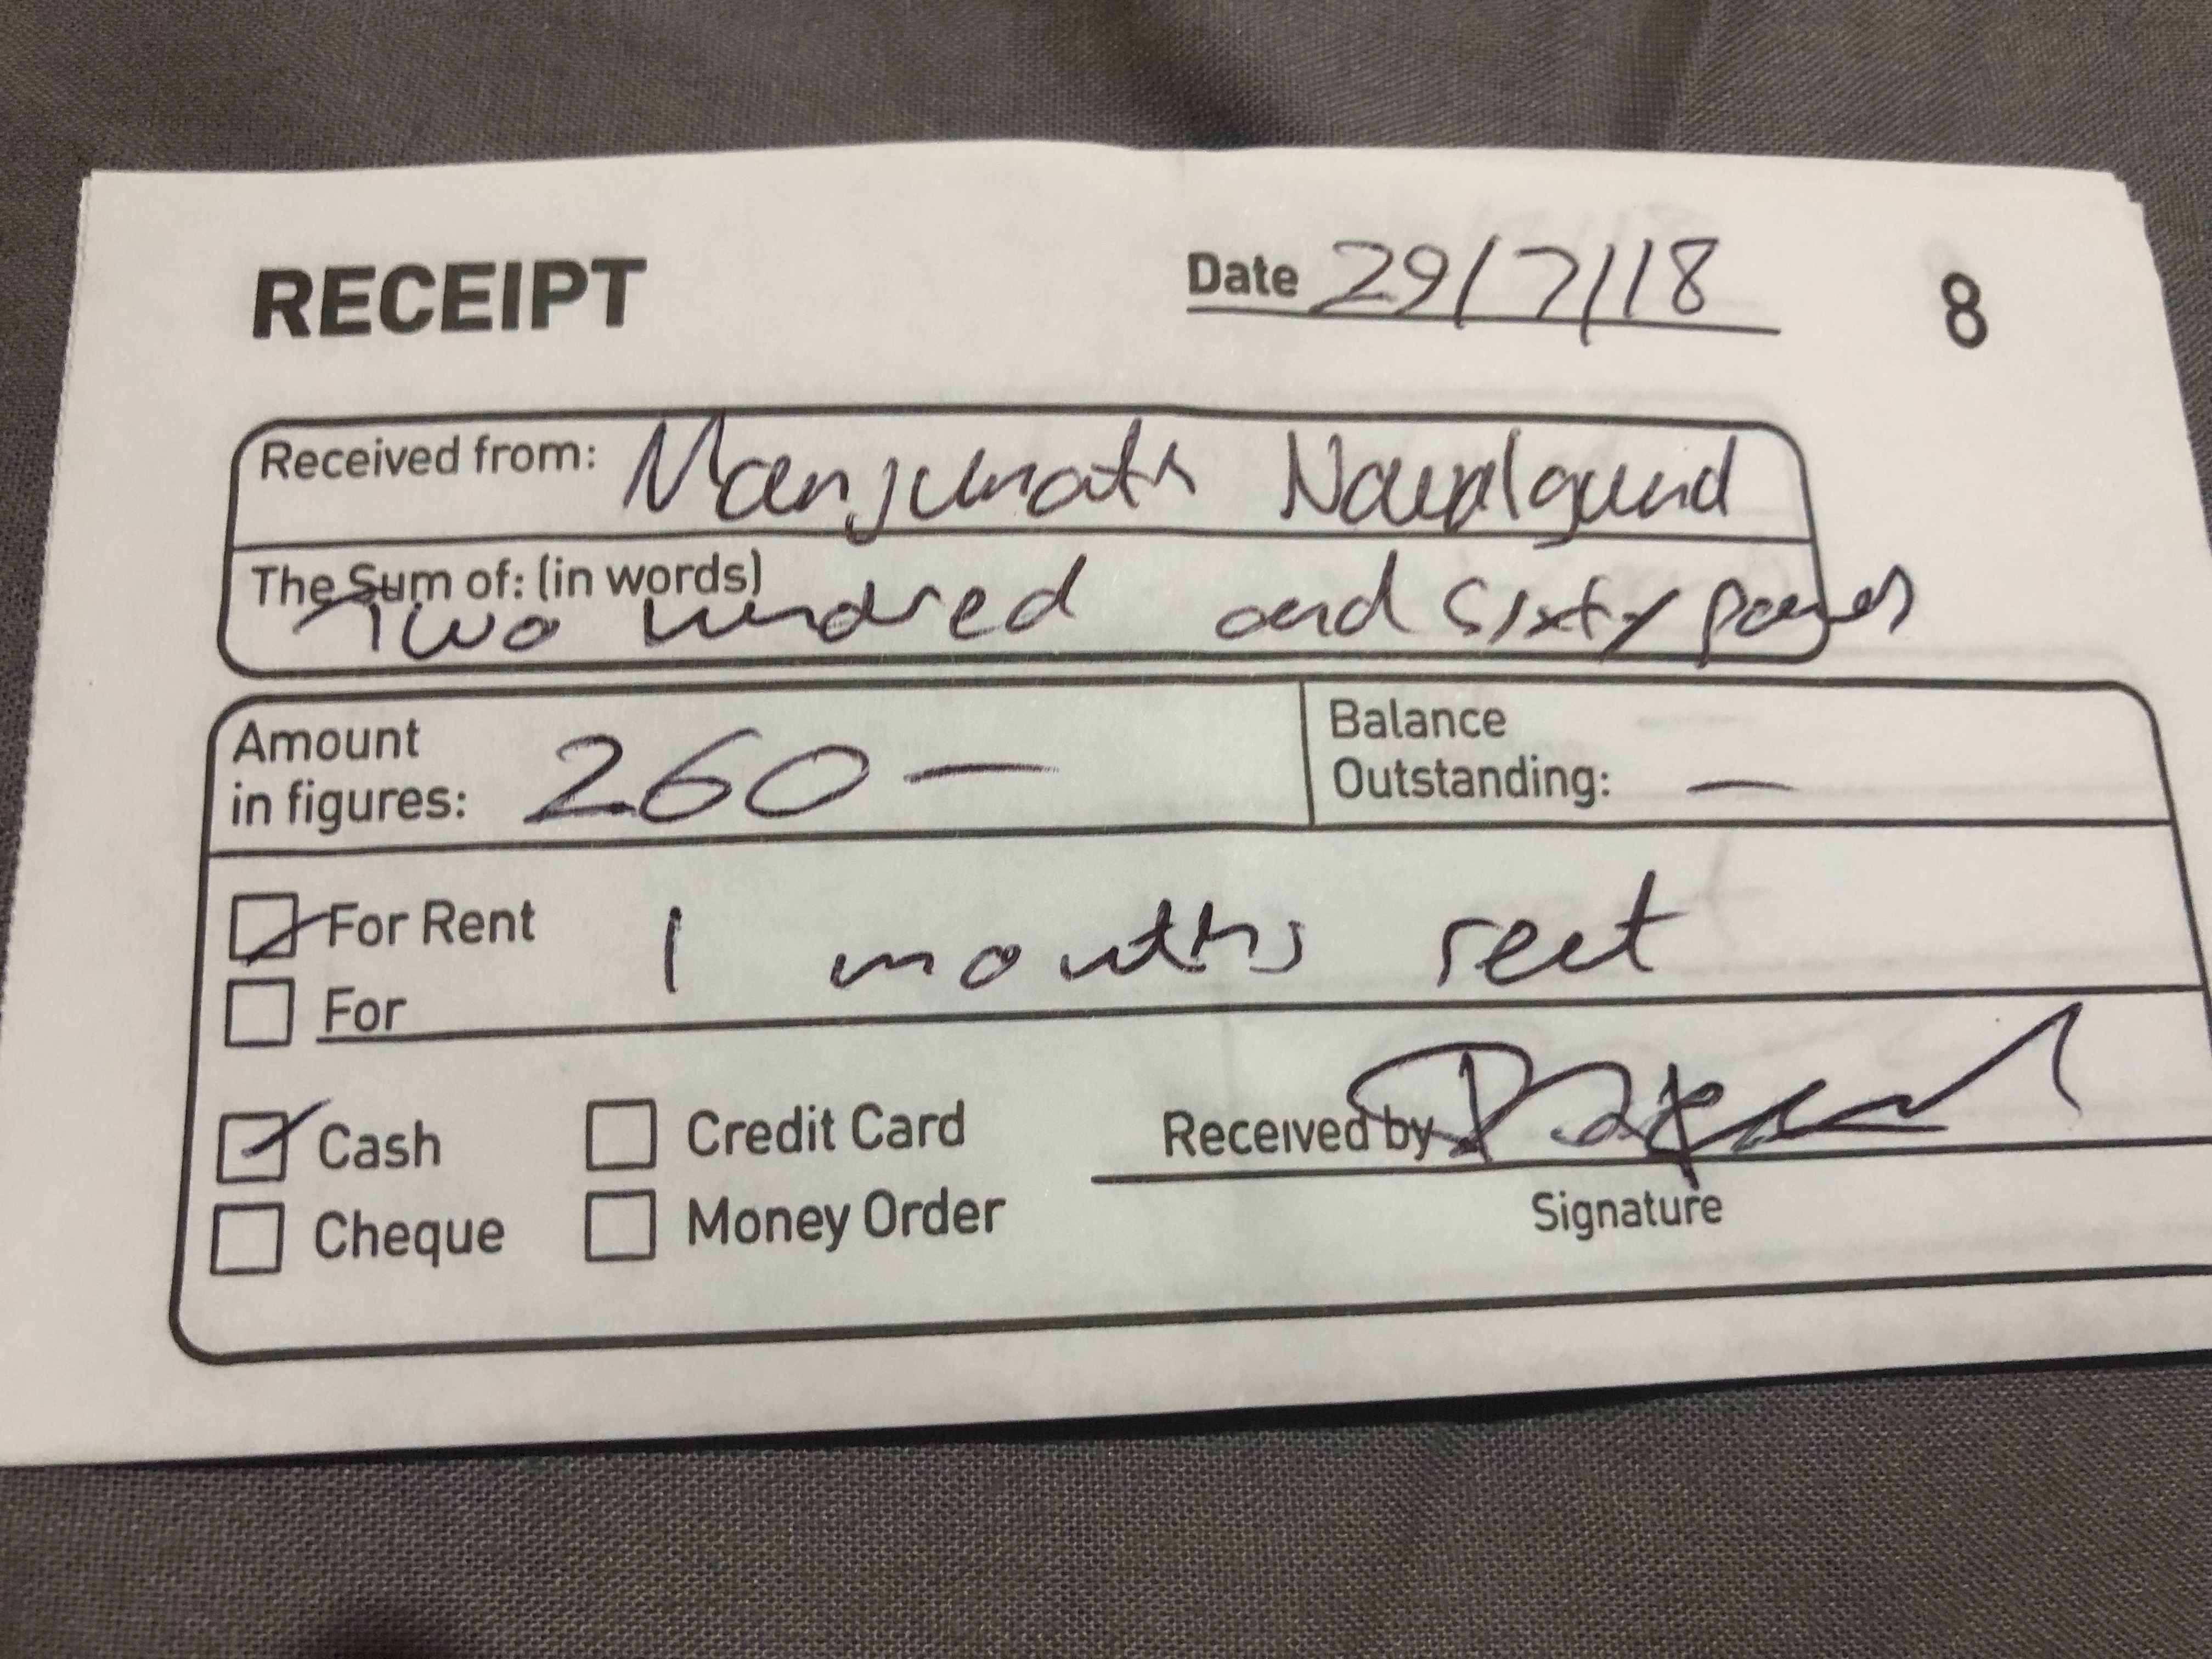 RECEIPT Date 29/7/18 8
Received from: Manjunath Navalgund
The Sum of: (in words)
Two hundred and sixty
Amount
in figures: 260 —
Balance
Outstanding: —
For Rent 1 months rent
For
Cash Credit Card
Cheque Money Order
Received by
Signature